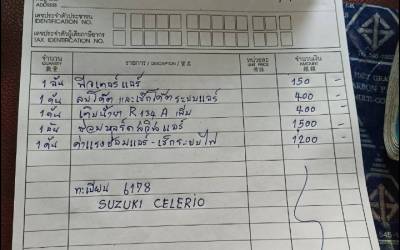 เลขประจำตัวประชาชน
IDENTIFICATION NO.
เลขประจำตัวผู้เสียภาษีอากร
TAX IDENTIFICATION NO.
จำนวน รายการ / DESCRIPTION / หน่วยละ จำนวนเงิน
QUANTITY UNIT PRICE AMOUNT
1 อัน ฟิวเตอร์แอร์ 150 -
1 คัน ลมโต้ดัต และเช็กโต้ดระบบแอร์ 400 -
1 คัน เติมน้ำยา R134A เต็ม 400 -
1 อัน ซ่อมหลอดสวิตแอร์ 1,500 -
1 คัน ค่าแรงซ่อมแอร์ - เช็กระบบไฟ 1,200 -
ทะเบียน 6178
SUZUKI CELERIO